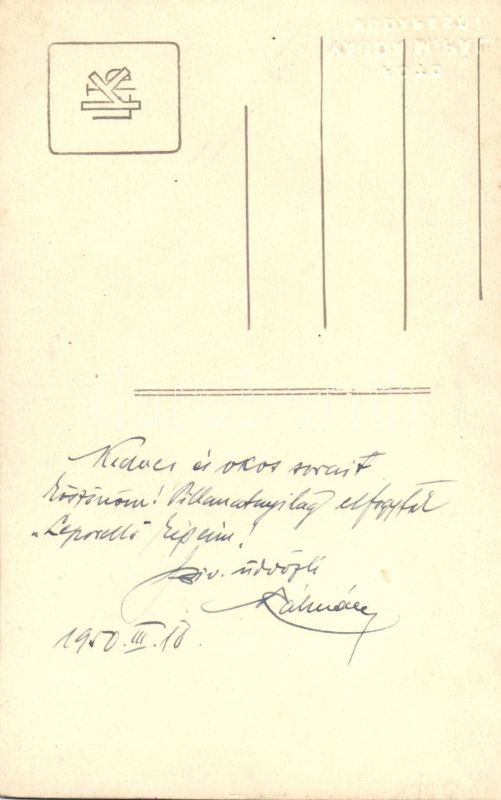 Kedves és okos sorait
köszönöm! Pillanatnyilag elfogytak
„Leporelló" képeim!
Sziv. üdvözli
Kálmán
1950. III. 18.